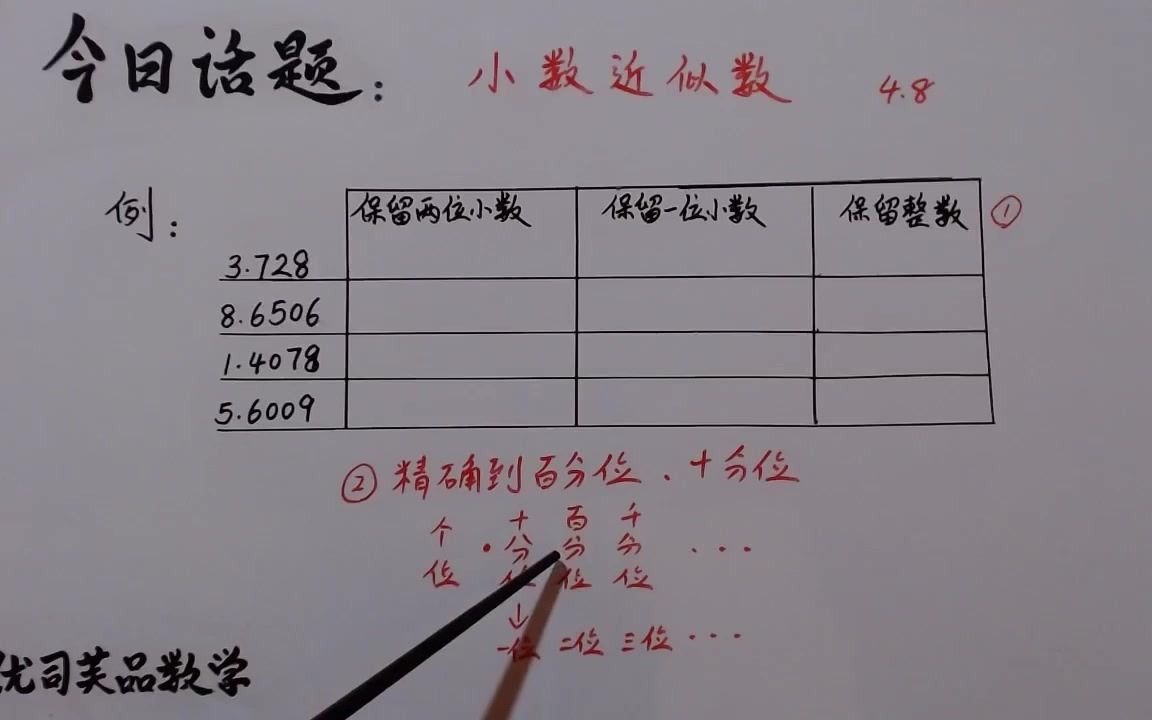 今日话题： 小数近似数 4.8
例：
保留两位小数 保留一位小数 保留整数 ①
3.728
8.6506
1.4078
5.6009
② 精确到百分位、十分位
个位 . 十分位 百分位 千分位 ...
↓
一位 二位 三位 ...
优司芙品数学